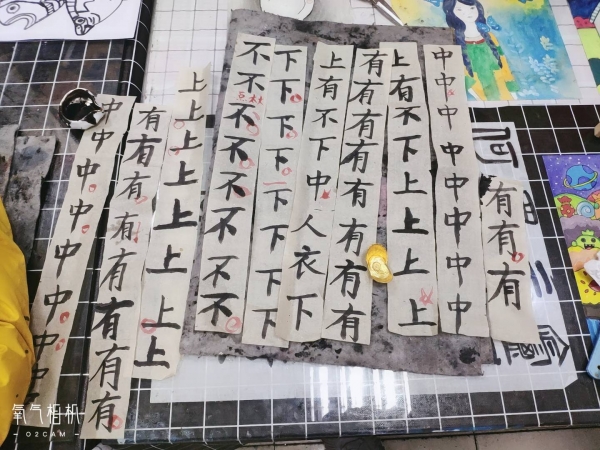 中中中中中中中中
有有有有有有有有
上上上上上上上上
不不不不不不不不
下下下下下下下下
上有不下中人衣下
有有有有有有有有
上有不下上上上上
中中中中中中中中
有有有
氧气相机
- O2CAM -